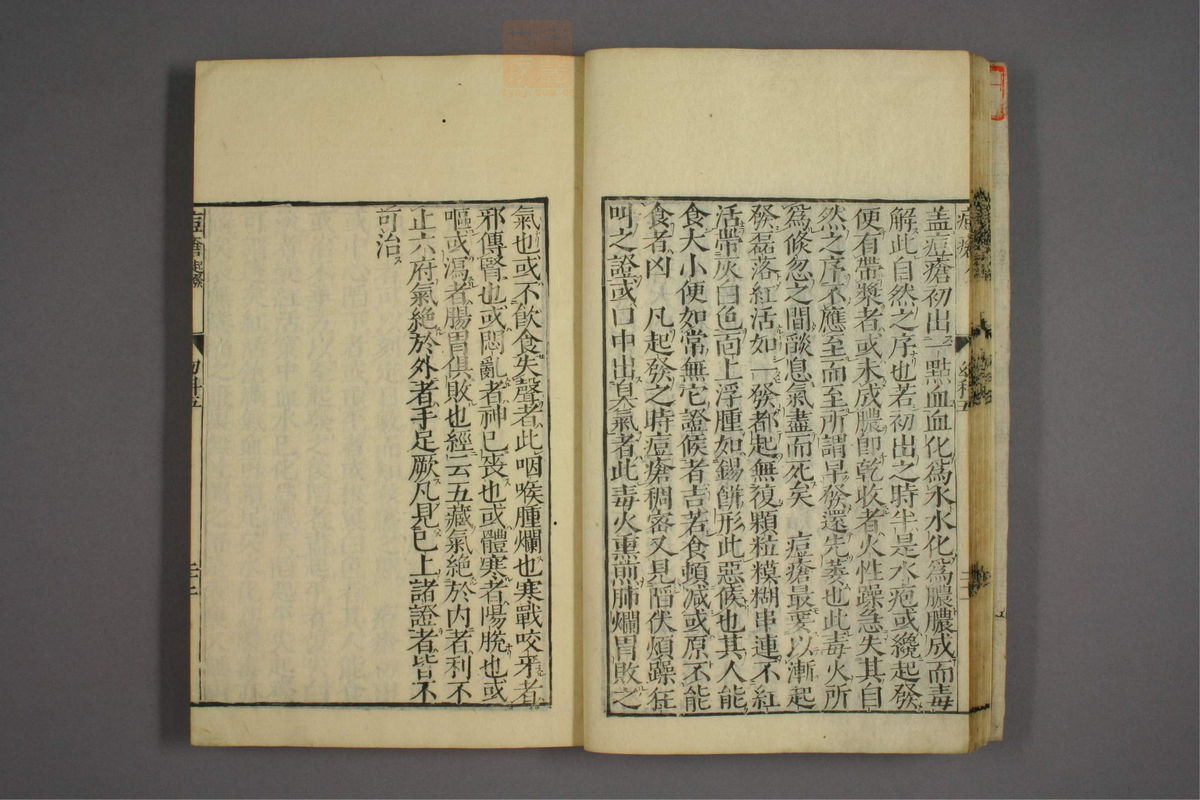 蓋痘瘡初出一點血血化爲水水化爲膿膿成而毒
解此自然之序也若初出之時半是水疱或纔起發
便有帶漿者或未成膿即乾收者火性躁急失其自
然之序不應至而至所謂早發還先萎也此毒火所
爲倏忽之間燄息氣盡而死矣 痘瘡最要以漸起
發磊落紅活如一發都起無復顆粒糢糊串連不紅
活帶灰白色面上浮腫如錫餅形此惡候也其人能
食大小便如常無它證候者吉若食頓减或原不能
食者凶 凡起發之時痘瘡稠密又見陷伏煩躁狂
叫之證或口中出臭氣者此毒火熏煎肺爛胃敗之
氣也或不飲食失聲者此咽喉腫爛也寒戰咬牙者
邪傳腎也或悶亂者神已喪也或體寒者陽脫也或
嘔或瀉者腸胃俱敗也經云五藏氣絕於內者利不
止六府氣絕於外者手足厥凡見已上諸證者皆不
可治
痘瘡
幼科五